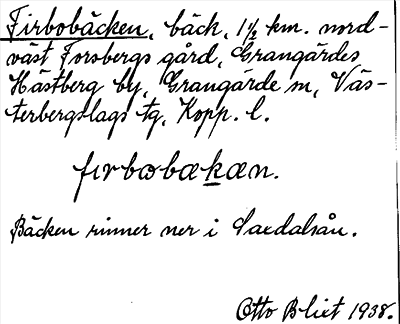 Firbobäcken, bäck, 1½ km. nord-
väst Forsbergs gård, Grangärdes
Hästberg by, Grangärde sn, Väs-
terbergslags tg, Kopp. l.
fırbobækæn.
Bäcken rinner ner i Saxdalsån.
Otto Blixt 1938.